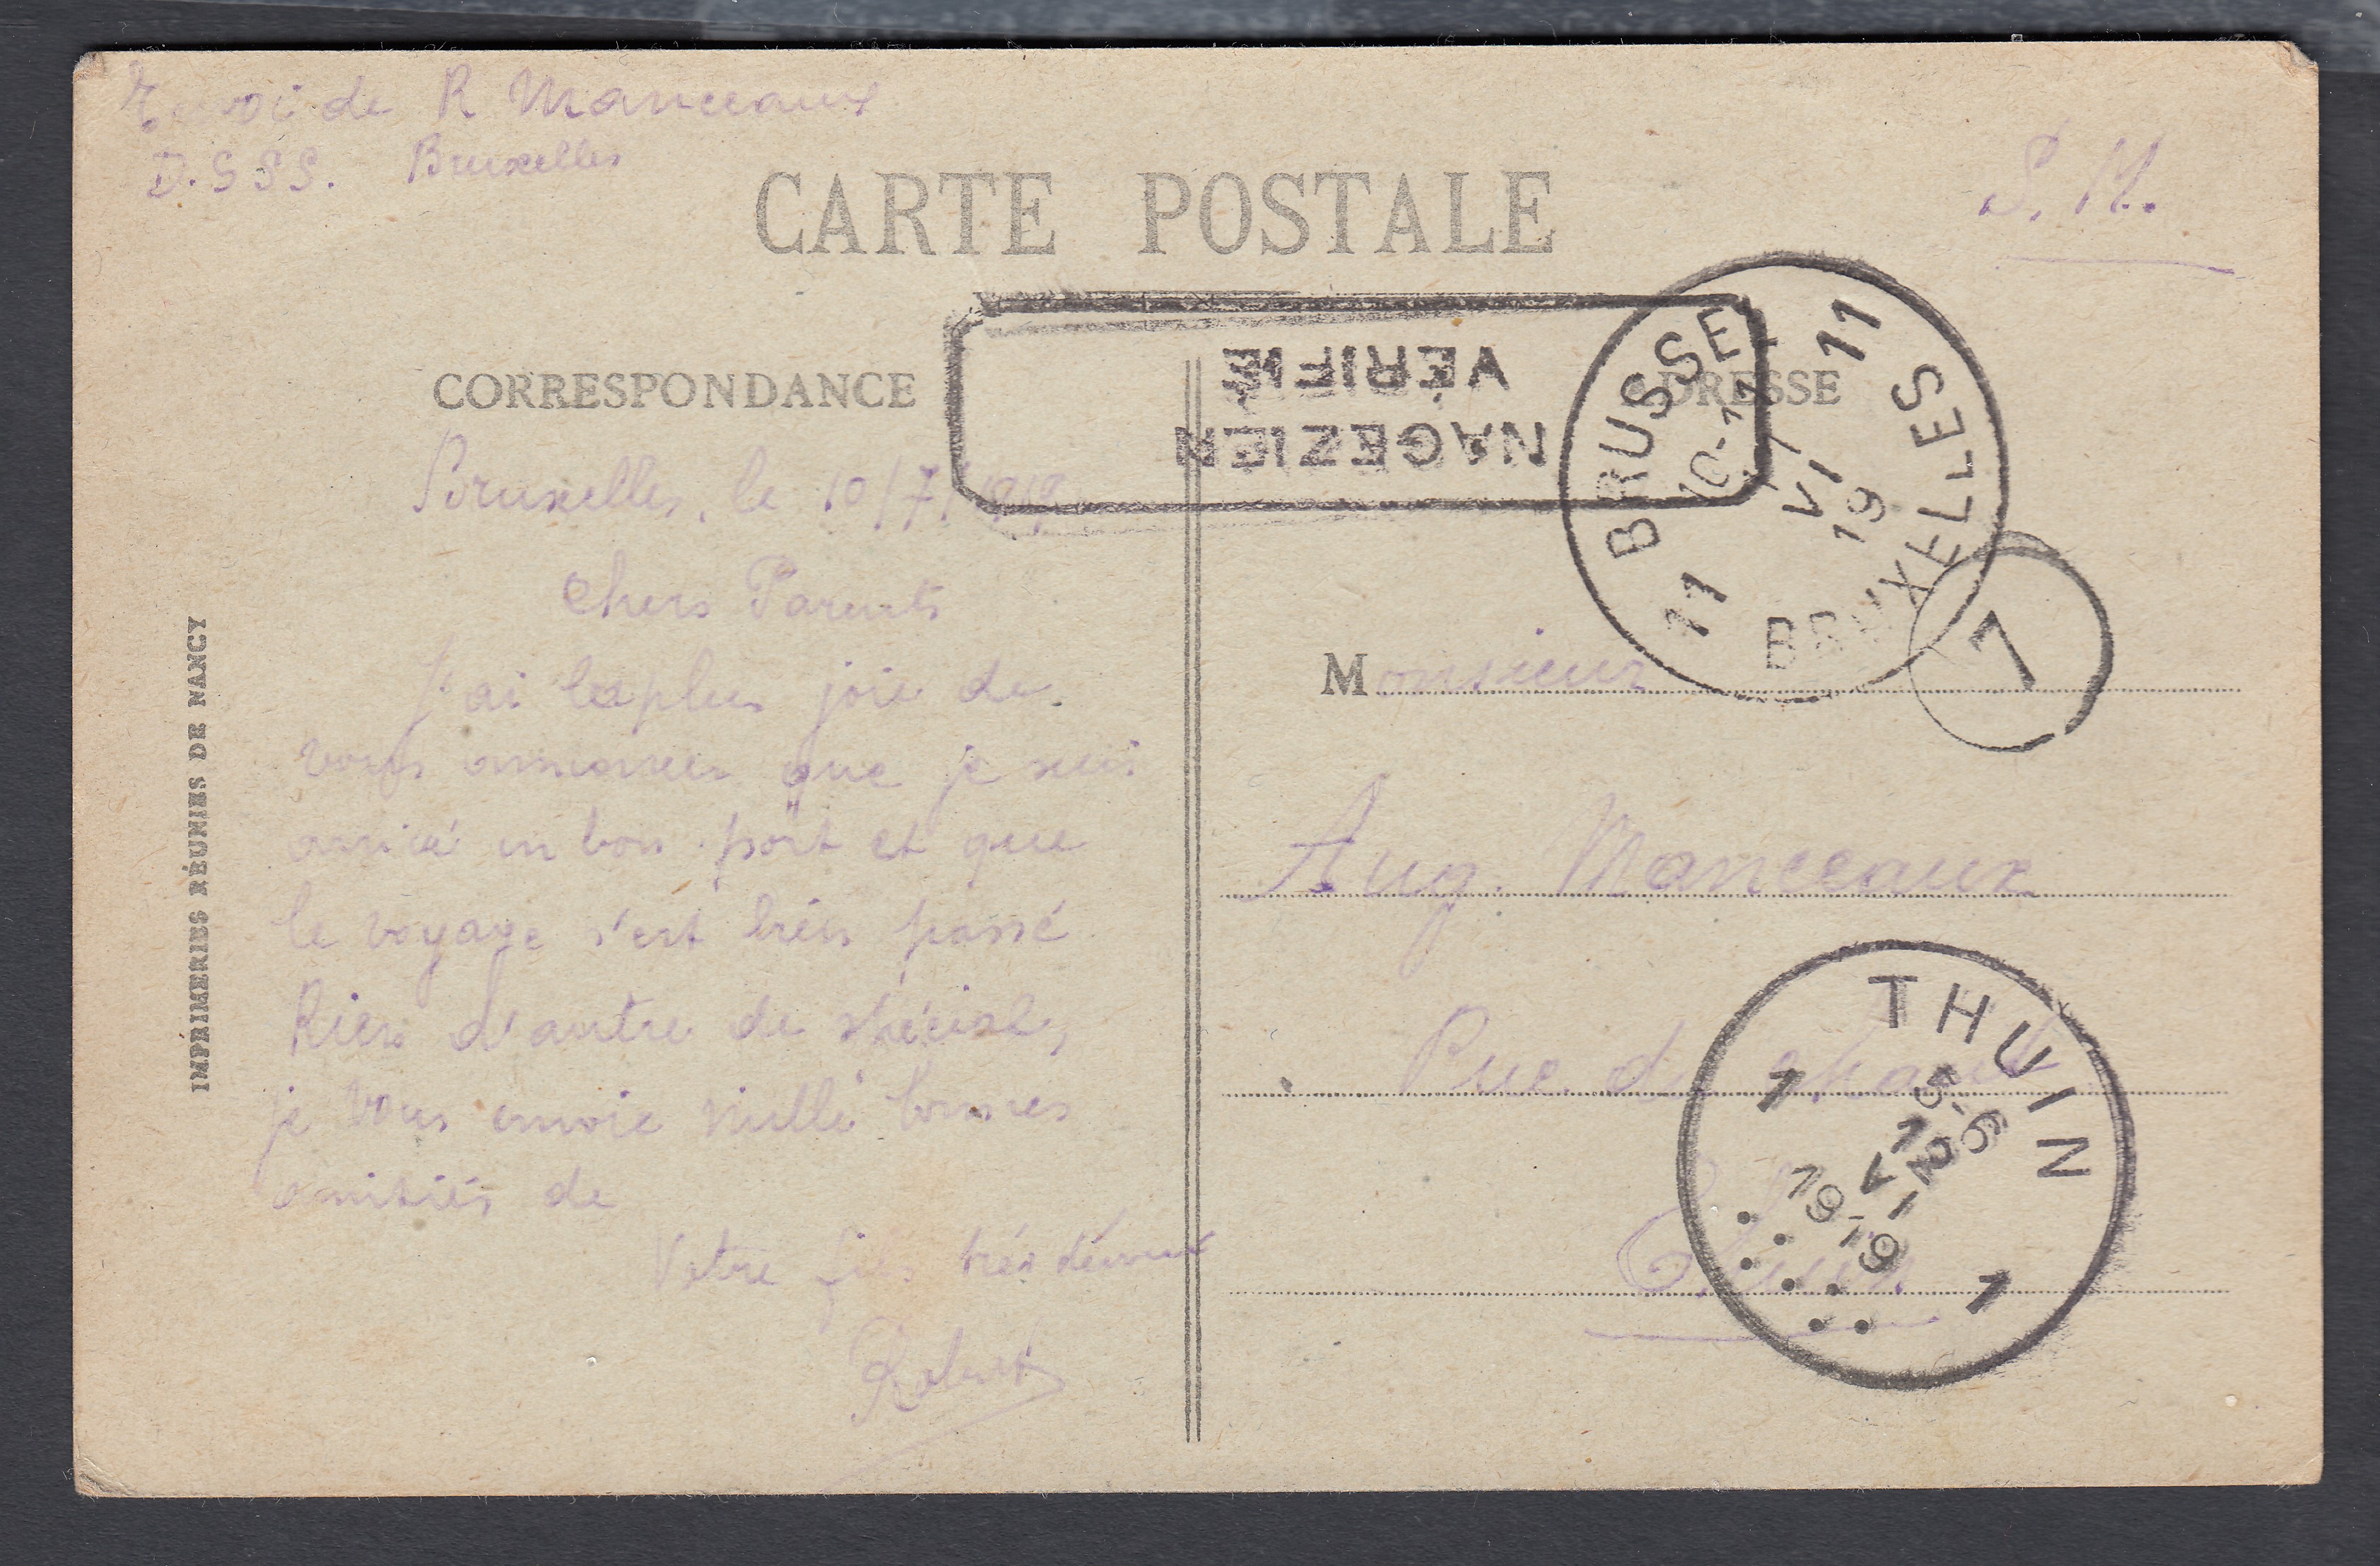 Envoi de R Manceaux
D.S S S. Bruxelles
S. M.
CARTE POSTALE
CORRESPONDANCE
ADRESSE
VÉRIFIÉ
NAGEZIEN
BRUSSEL
11
10-11
11
VI
19
11
BRUXELLES
7
Bruxelles, le 10/7/1919
Chers Parents
J'ai la plus joie de
vous annoncer que je suis
arrivé en bon port et que
le voyage s'est très passé
Rien d'autre de spécial,
je vous envoie mille bonnes
amitiés de
Votre fils très dévoué
Robert
Monsieur
Aug. Manceaux
Rue d
Thuin
THUIN
1
5-6
12
VI
1919
1
IMPRIMERIES RÉUNIES DE NANCY